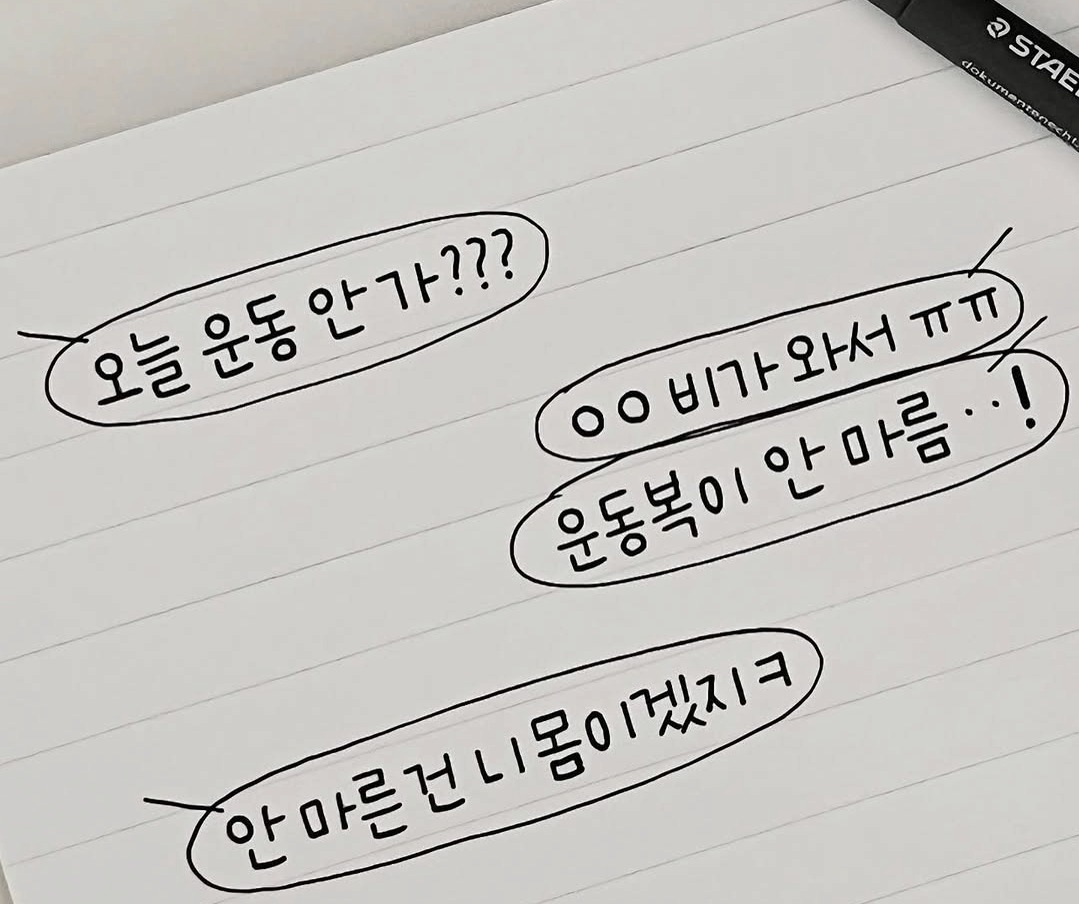 STAE
dokumentenecht
오늘 운동 안 가???
ㅇㅇ 비가 와서 ㅠㅠ
운동복이 안 마름··!
안 마른 건 니 몸이겠지ㅋ